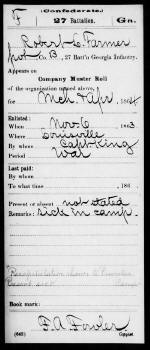 F (Confederate.) Ga.
27 Battalion.
Robert C. Farmer
Co. B, 27 Batt'n Georgia Infantry.
Appears on
Company Muster Roll
of the organization named above,
for Mch & Apr, 1864
Enlisted:
When Nov 6, 1863
Where Louisville
By whom Capt King
Period War
Last paid:
By whom
To what time , 186 .
Present or absent not stated
Remarks: sick in camp.
Book mark:
F. A. Fowler
(642) Copyist.